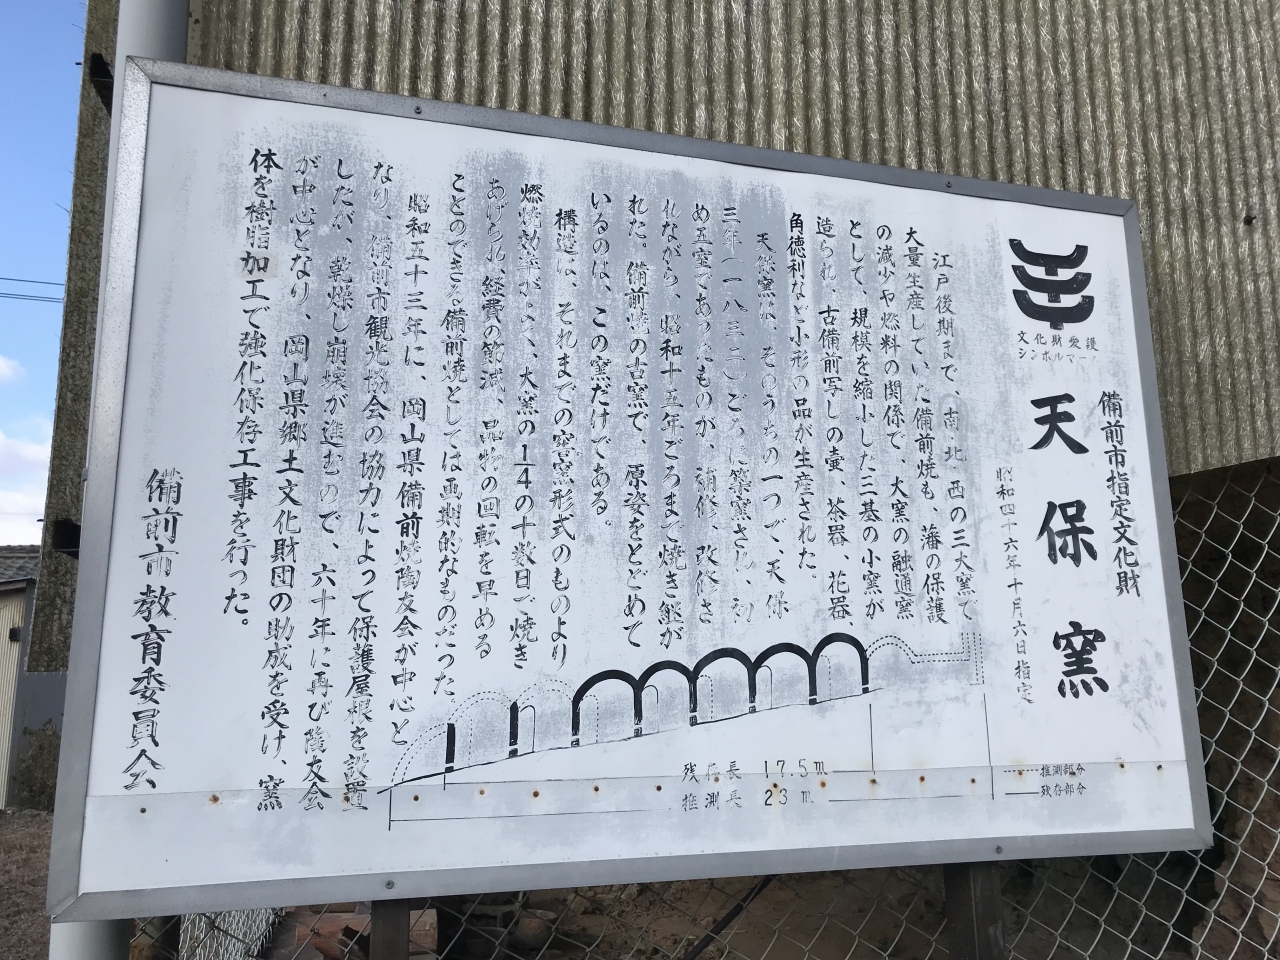 備前市指定文化財
文化財愛護
シンボルマーク
天保窯
昭和四十六年十月六日指定
江戸後期まで、南・北・西の三大窯で
大量生産していた備前焼も、藩の保護
の減少や燃料の関係で、大窯の融通窯
として、規模を縮小した三基の小窯が
造られ、古備前写しの壷、茶器、花器、
角徳利など小形の品が生産された。
天保窯は、そのうちの一つで、天保
三年(一八三二)ごろに築窯され、初
め五室であったものが、補修、改修さ
れながら、昭和十五年ごろまで焼き継が
れた。備前焼の古窯で、原姿をとどめて
いるのは、この窯だけである。
構造は、それまでの窖窯形式のものより
燃焼効率がよく、大窯の1/4の十数日で焼き
あげられ、経費の節減、品物の回転を早める
ことのできる備前焼としては画期的なものだった
昭和五十三年に、岡山県備前焼陶友会が中心と
なり、備前市観光協会の協力によって保護屋根を設置
したが、乾燥し崩壊が進むので、六十年に再び陶友会
が中心となり、岡山県郷土文化財団の助成を受け、窯
体を樹脂加工で強化保存工事を行った。
備前市教育委員会
残存長 17.5m
推測長 23m
推測部分
残存部分